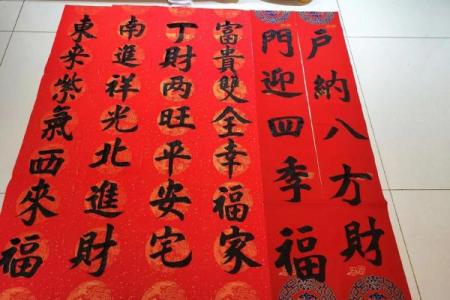 户納八方財
門迎四季福
富貴雙全幸福家
丁財两旺平安宅
南進祥光北進財
東来紫氣西來福